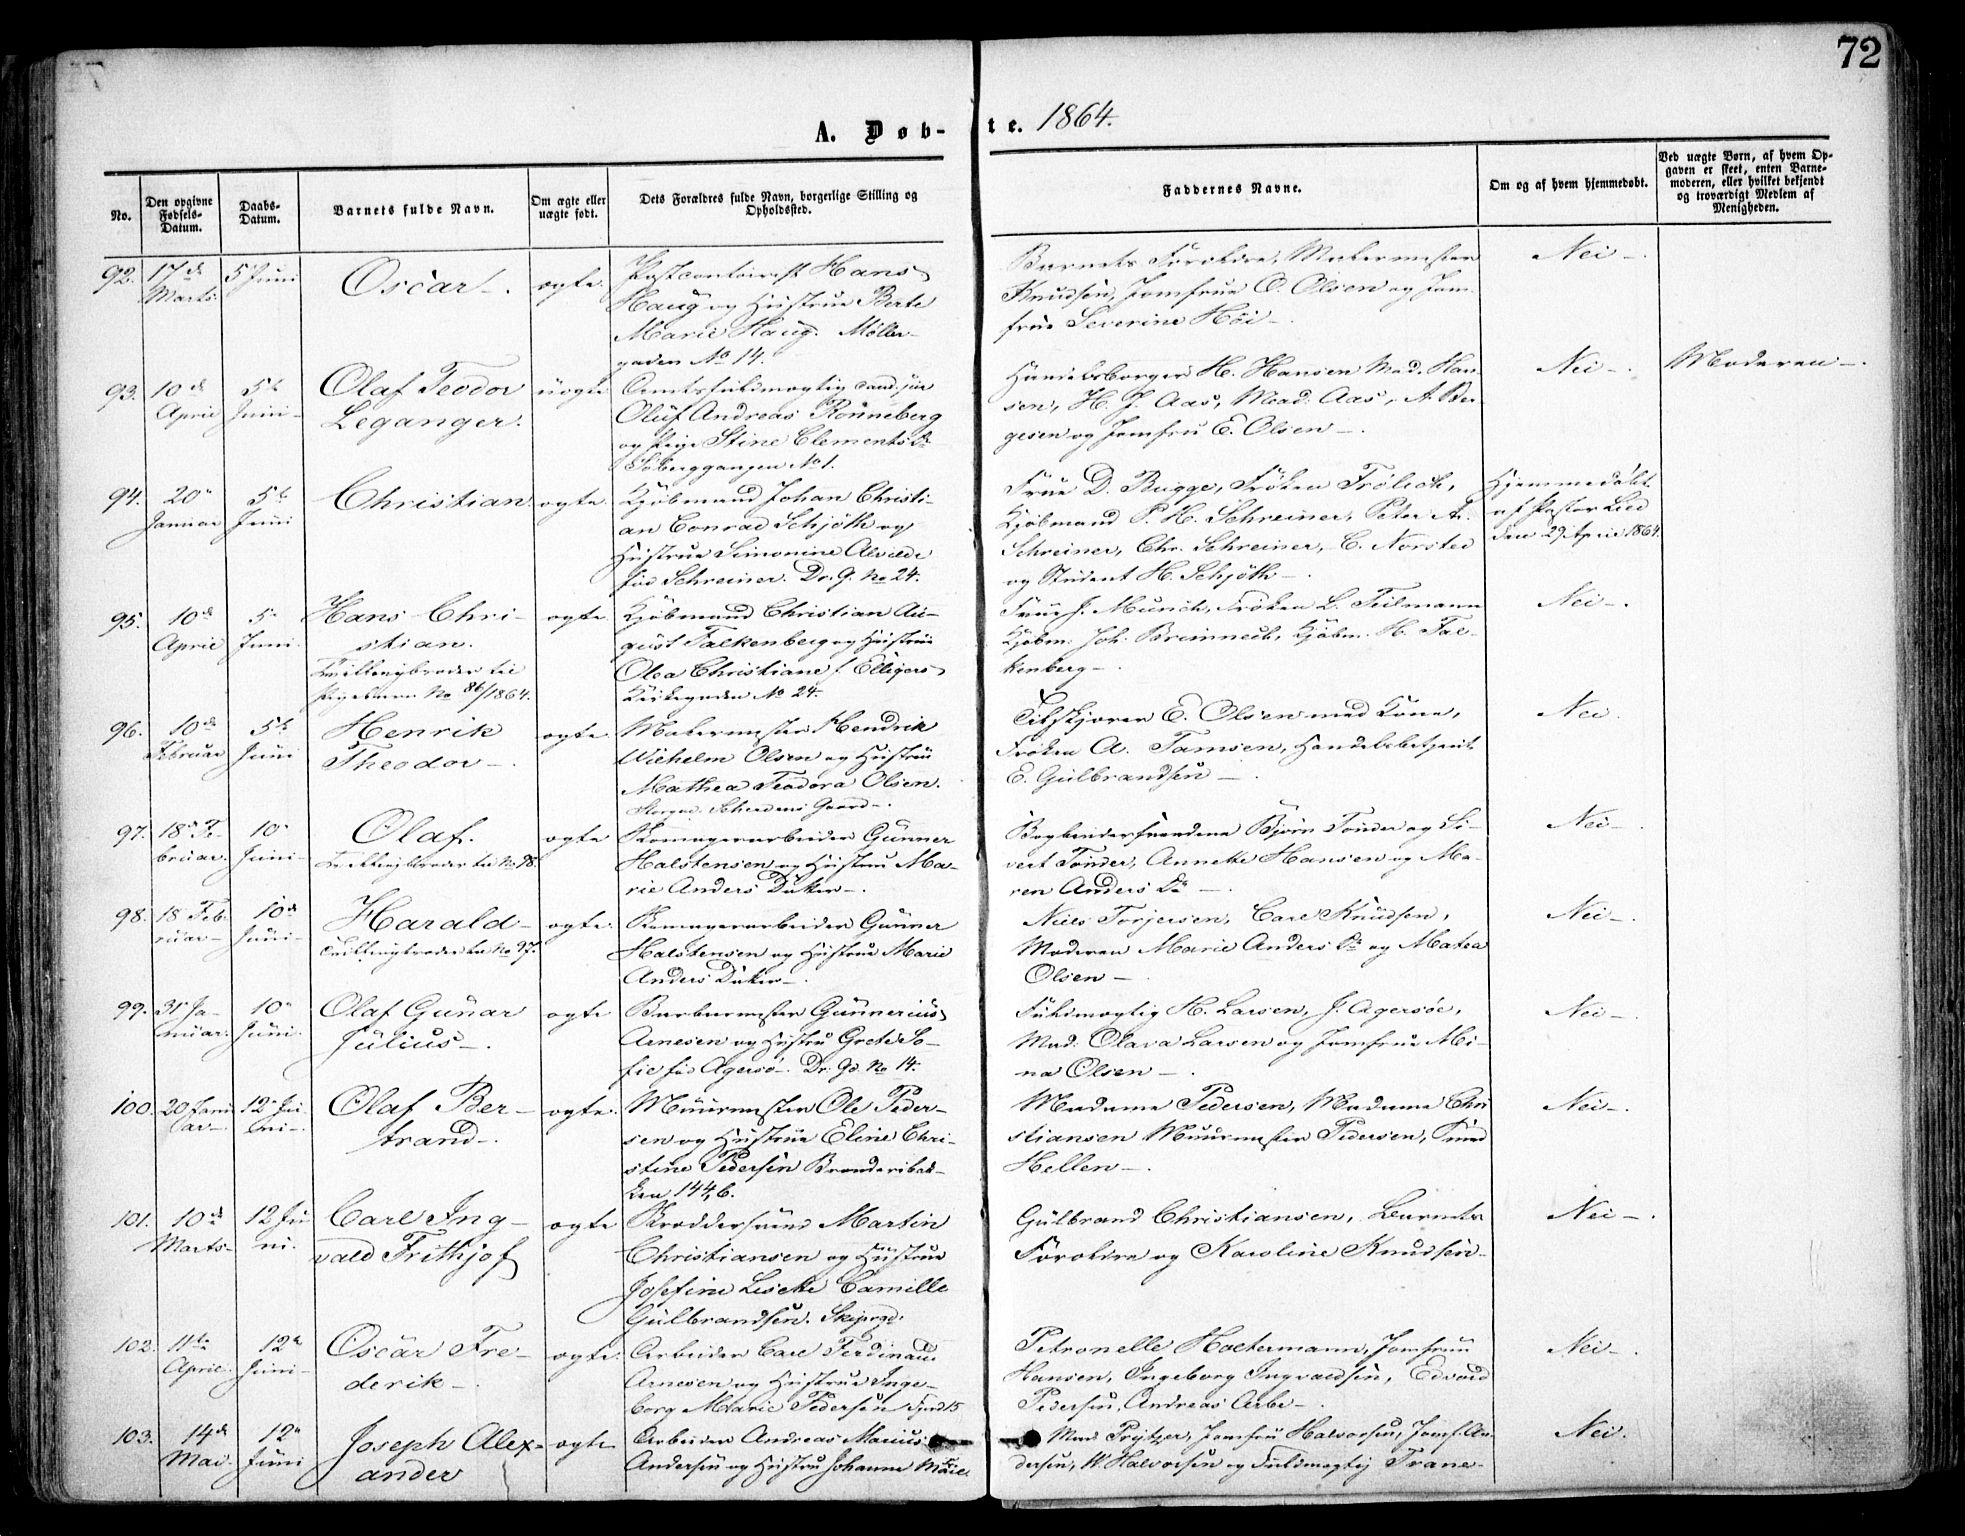 72
A. Døb- te. 1864.
No.
Den opgivne Fødsels-Datum.
Daabs-Datum.
Barnets fulde Navn.
Om ægte eller uægte født.
Dets Forældres fulde Navn, borgerlige Stilling og Opholdssted.
Faddernes Navne.
Om og af hvem hjemmedøbt.
Ved uægte Børn, af hvem Opgaven er skeet, enten Barnemoderen, eller hvilket bekjendt og troværdigt Medlem af Menigheden.
92. 17de Marts 5 Juni Oscar –. ægte.
Postcontoirist Hans
Haug og Hustrue Berte
Marie Haug. Møller-
gaden No 14.
Barnets Forældre, Malermester
Knudsen, Jomfrue O. Olsen og Jom-
frue Severine Höi –.
Nei –.
93. 10de April 5te Juni – Olaf Teodor Leganger. uægte
Amtsfuldmægtig cand. jur
Oluf Andreas Rønneberg
og Pige Stine Clements Dr
No 1.
Handelsborger H. Hansen Mad. Han-
sen, H. J. Aas, Mad. Aas, A. Bør-
gesen og Jomfru E. Olsen –.
Nei –.
Moderen –.
94. 20de Januar 5te Juni Christian ægte.
Kjøbmand Johan Christi-
an Conrad Schjöth og
Hustrue Simonine Alvilde
født Schreiner. Dr. G. No 24.
Frue D. Bugge, Fröken Frölich,
Kjøbmand P. H. Schreiner, Peter A.
Schreiner, Chr. Schreiner, C. Norsted
og Student H. Schjöth –.
Hjemmedöbt
af Pastor
den 29 April 1864.
95. 10de April 5te Juni. Hans Chri-
stian. ægte
Tvillingbroder til
Pigebarn No 86/1864.
Kjøbmand Christian Au-
gust Falkenberg og Hustrue
Olea Christiane f. Elligers
Kirkegaden No 24.
Frue J. Munch, Fröken L. Teilmann
Kjøbm. Joh. Kjøbm. H. Fal-
kenberg –.
Nei –.
96. 10de Februar 5te Juni Henrik
Theodor –. ægte
Malermester Hendrik
Wilhelm Olsen og Hustrue
Mathea Teodora Olsen.
Storgd. Gaard –.
E. Olsen med Kone,
Fröken A. Tamsen, Handelsbetjent
E. Gulbrandsen –.
Nei.
97. 18de Fe-
bruar. 10de Juni – Olaf. ægte
Tvillingbroder til No 98.
Komagerarbeider Gunner
Halstensen og Hustrue Ma-
rie Anders Datter –.
Bogbindersvendene Björn Tonder og Si-
vert Tonder, Annette Hansen og Ma-
ren Anders Dr –.
Nei –.
98. 18 Feb-
ruar – 10de Juni – Harald – ægte.
Tvillingbroder til No 97.
Komagerarbeider Gunner
Halstensen og Hustrue Marie
Anders Datter –.
Niels Torjersen, Carl Knudsen,
Moderen Marie Anders Dr og Matea
Olsen –
Nei –.
99. 31 Ja-
nuar. 10de Juni. Olaf Gunar
Julius –. ægte
Gunnerius
Arnesen og Hustru Grete So-
fie fød Agersö –. Dr. Gd. No 14.
Fuldmægtig H. Larsen, J. Agersöe,
Mad. Olava Larsen og Jomfrue Mi-
na Olsen –.
Nei –.
100. 20 Janu
ar –. 12te Ju-
ni –. Olaf Ber-
trand –. ægte.
Muurmester Ole Peder-
sen og Hustrue Eline Chri-
stine Pedersen Brænderibak-
ken 144b.
Madame Pedersen, Madame Chri
stiansen Muurmester Pedersen,
Hellen –.
Nei –.
101. 10de Marts – 12 Ju
ni. Carl Ing-
vald Frithjof ægte
Martin
Christiansen og Hustrue
Josefine Camille
Gulbrandsen. Skipergd.
Gulbrand Christiansen, Barnets
Forældre og Karoline Knudsen –
Nei –.
102. 11te April. 12te Juni – Oscar Fre-
derik –. ægte.
Arbeider Carl Ferdinand
Arnesen og Hustrue Inge-
borg Marie Pedersen
Petronelle Jomfrue
Hansen, Ingeborg Ingvaldsen, Edvard
Pedersen, Andreas –.
Nei –.
103. 14de Mai. 12te Juni Joseph Alex-
ander ægte
Arbeider Andreas Marius
Andersen og Hustru Johanne Marie
Mad Jomfru Halvorsen, Jomf. An-
dersen, W. Halvorsen og Fuldmægtig Trane –
Nei.